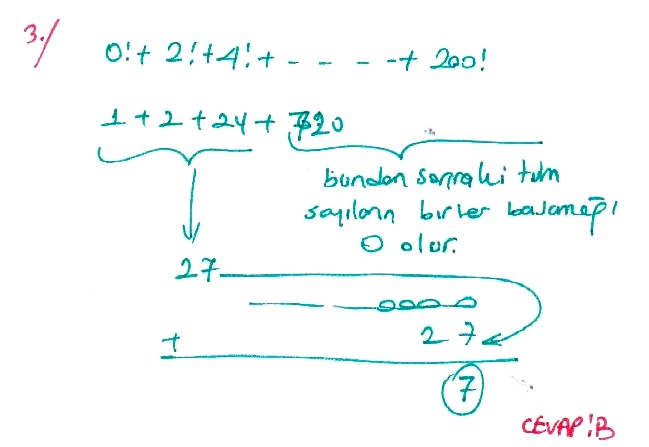 3./
0!+ 2!+4!+ - - - -+ 200!
1 + 2 + 24 + 720
bundan sonraki tüm
sayıların birler basamağı
0 olur.
27
0000 0
+ 27
7
CEVAP:B